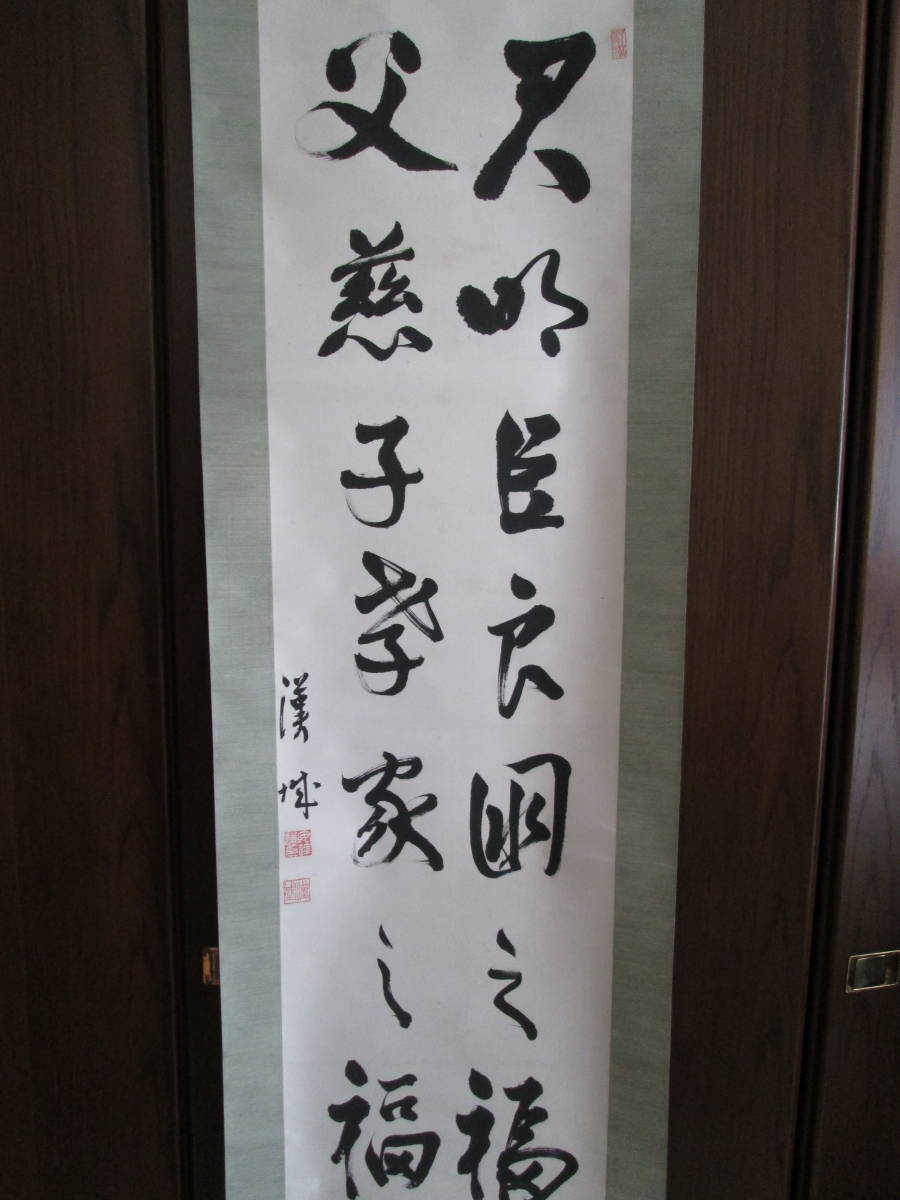 君明臣良國之福
父慈子孝家之福
漢城